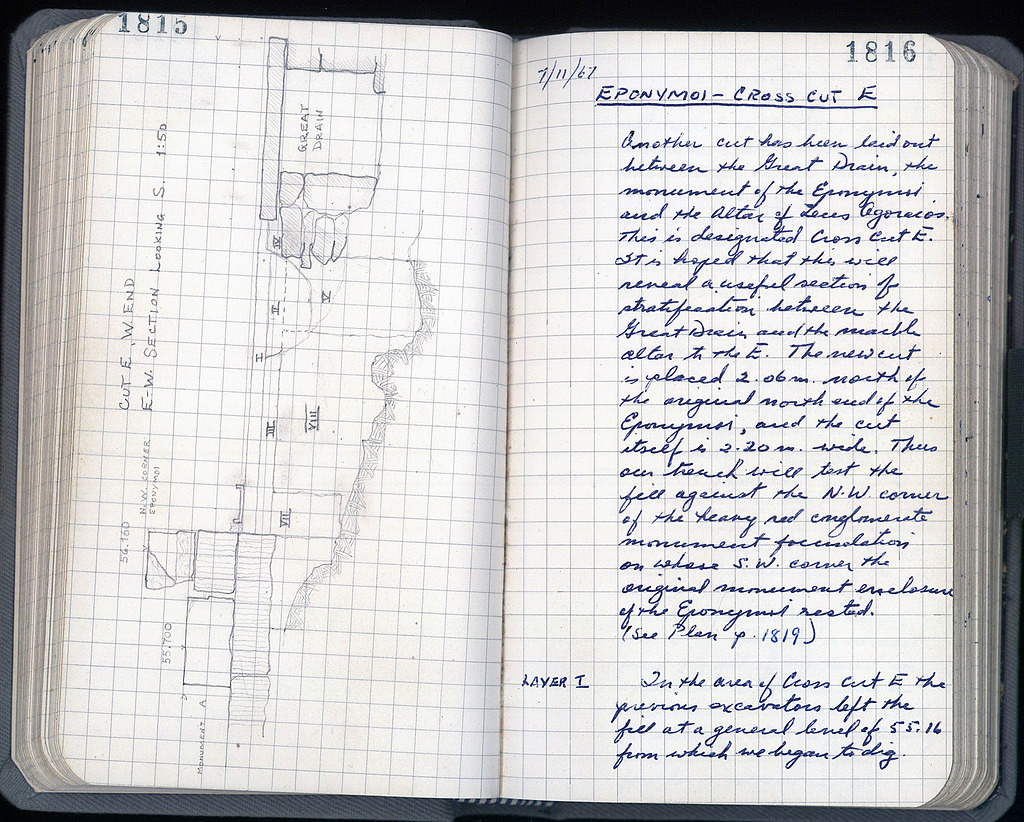 1815
CUT E, W. END
E-W. SECTION LOOKING S. 1:50
GREAT
DRAIN
IV
II
V
I
III
VIII
VII
N.W. CORNER
EPONYMOI
56.160
55.700
MONUMENT A
1816
7/11/67
EPONYMOI - CROSS CUT E
Another cut has been laid out
between the Great Drain, the
monument of the Eponymoi
and the Altar of Zeus Agoraios.
This is designated Cross Cut E.
It is hoped that this will
reveal a useful section of
stratification between the
Great Drain and the marble
altar to the E. The new cut
is placed 2.06 m. north of
the original north end of the
Eponymoi, and the cut
itself is 2.20 m. wide. Thus
our trench will test the
fill against the N.W. corner
of the heavy red conglomerate
monument foundation
on whose S.W. corner the
original monument enclosure
of the Eponymoi rested.
(See Plan p. 1819)
LAYER I In the area of Cross Cut E the
previous excavators left the
fill at a general level of 55.16
from which we began to dig.